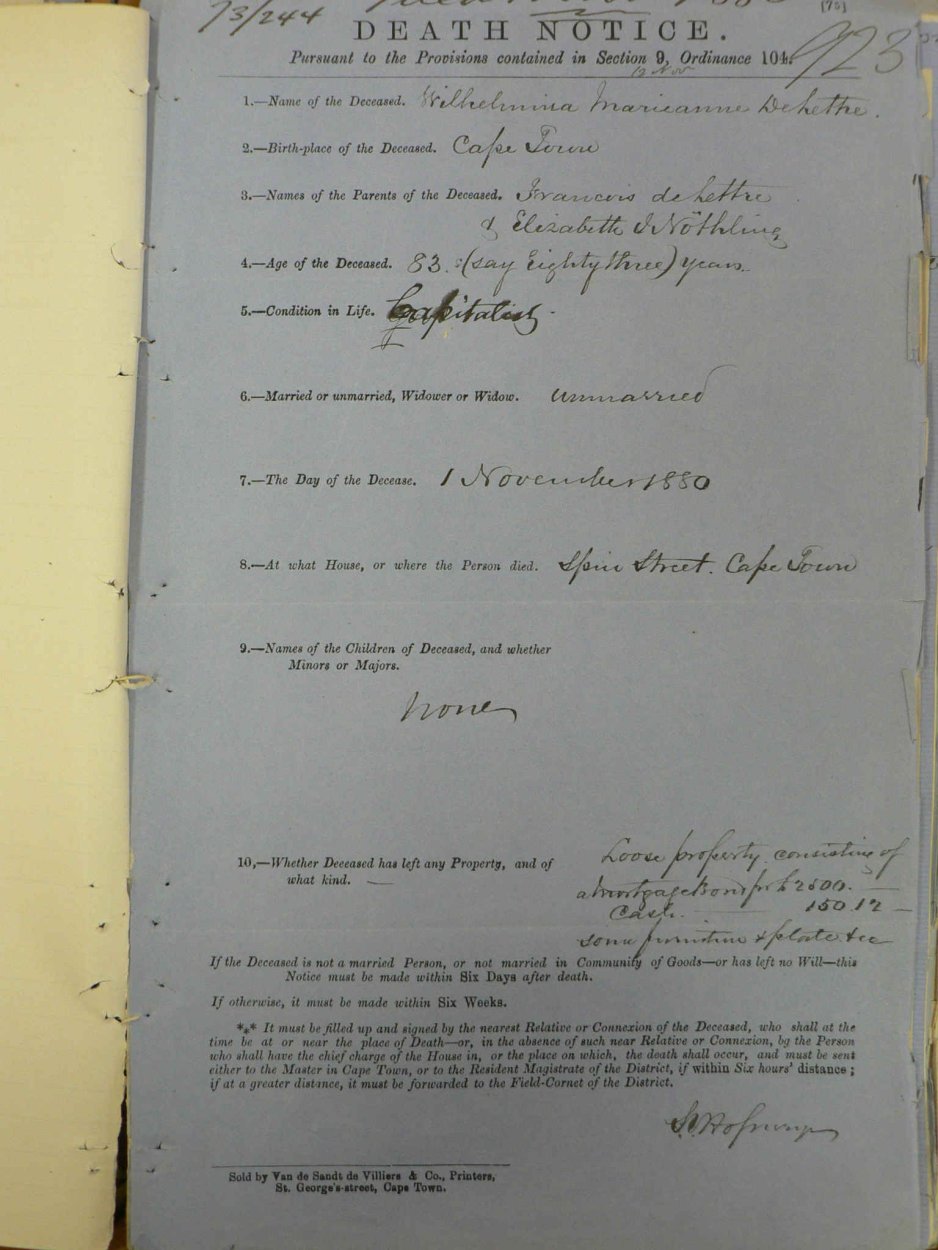 73/244
[78]
DEATH NOTICE.
Pursuant to the Provisions contained in Section 9, Ordinance 104.
12 Nov
923
1.—Name of the Deceased. Wilhelmina Marieanne DeLettre.
2.—Birth-place of the Deceased. Cape Town
3.—Names of the Parents of the Deceased. Francois de Lettre
& Elizabeth J Nöthling
4.—Age of the Deceased. 83. (say Eighty three) years.
5.—Condition in Life. Capitalist.
6.—Married or unmarried, Widower or Widow. unmarried
7.—The Day of the Decease. 1 November 1880
8.—At what House, or where the Person died. Spin Street. Cape Town
9.—Names of the Children of Deceased, and whether
Minors or Majors.
None
10,—Whether Deceased has left any Property, and of
what kind. —
Loose property consisting of
a Mortgage Bond for £2500. —
Cash. — 150.12 —
some furniture & plate &c
If the Deceased is not a married Person, or not married in Community of Goods—or has left no Will—this
Notice must be made within Six Days after death.
If otherwise, it must be made within Six Weeks.
*** It must be filled up and signed by the nearest Relative or Connexion of the Deceased, who shall at the
time be at or near the place of Death—or, in the absence of such near Relative or Connexion, by the Person
who shall have the chief charge of the House in, or the place on which, the death shall occur, and must be sent
either to the Master in Cape Town, or to the Resident Magistrate of the District, if within Six hours' distance;
if at a greater distance, it must be forwarded to the Field-Cornet of the District.
Sold by Van de Sandt de Villiers & Co., Printers,
St. George's-street, Cape Town.